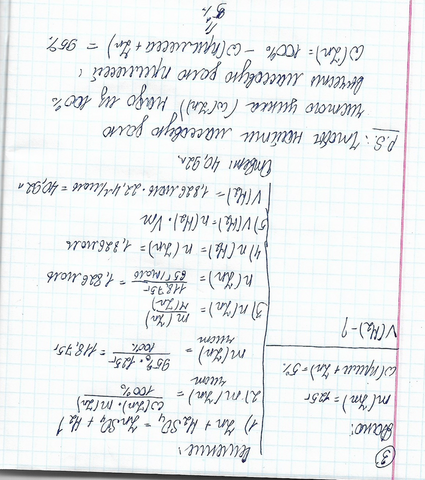 ③
Дано:
m(Zn) = 125г
ω(прим + Zn) = 5%
V(H₂) - ?
Решение:
1) Zn + H₂SO₄ = ZnSO₄ + H₂↑
2) m(Zn)чист = ω(Zn) · m(Zn) / 100%
m(Zn)чист = 95% · 125г / 100% = 118,75г
3) n(Zn) = m(Zn) / M(Zn)
n(Zn) = 118,75г / 65г/моль = 1,826моль
4) n(H₂) = n(Zn) = 1,826моль
5) V(H₂) = n(H₂) · Vm
V(H₂) = 1,826моль · 22,4л/моль = 40,92л
Ответ: 40,92л
P.S.: Чтобы найти массовую долю
чистого цинка (ω(Zn)) надо из 100%
вычесть массовую долю примесей:
ω(Zn) = 100% - ω(примеси + Zn) = 95%
5%